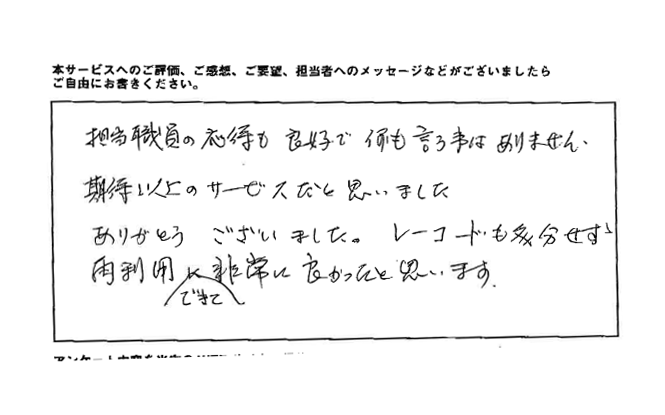 本サービスへのご評価、ご感想、ご要望、担当者へのメッセージなどがございましたら
ご自由にお書きください。
担当職員の応得も良好で何も言う事はありません.
期待以上のサービスだと思いました
ありがとう ございました。 レコードも多分せず
再利用できて非常に良かったと思います.